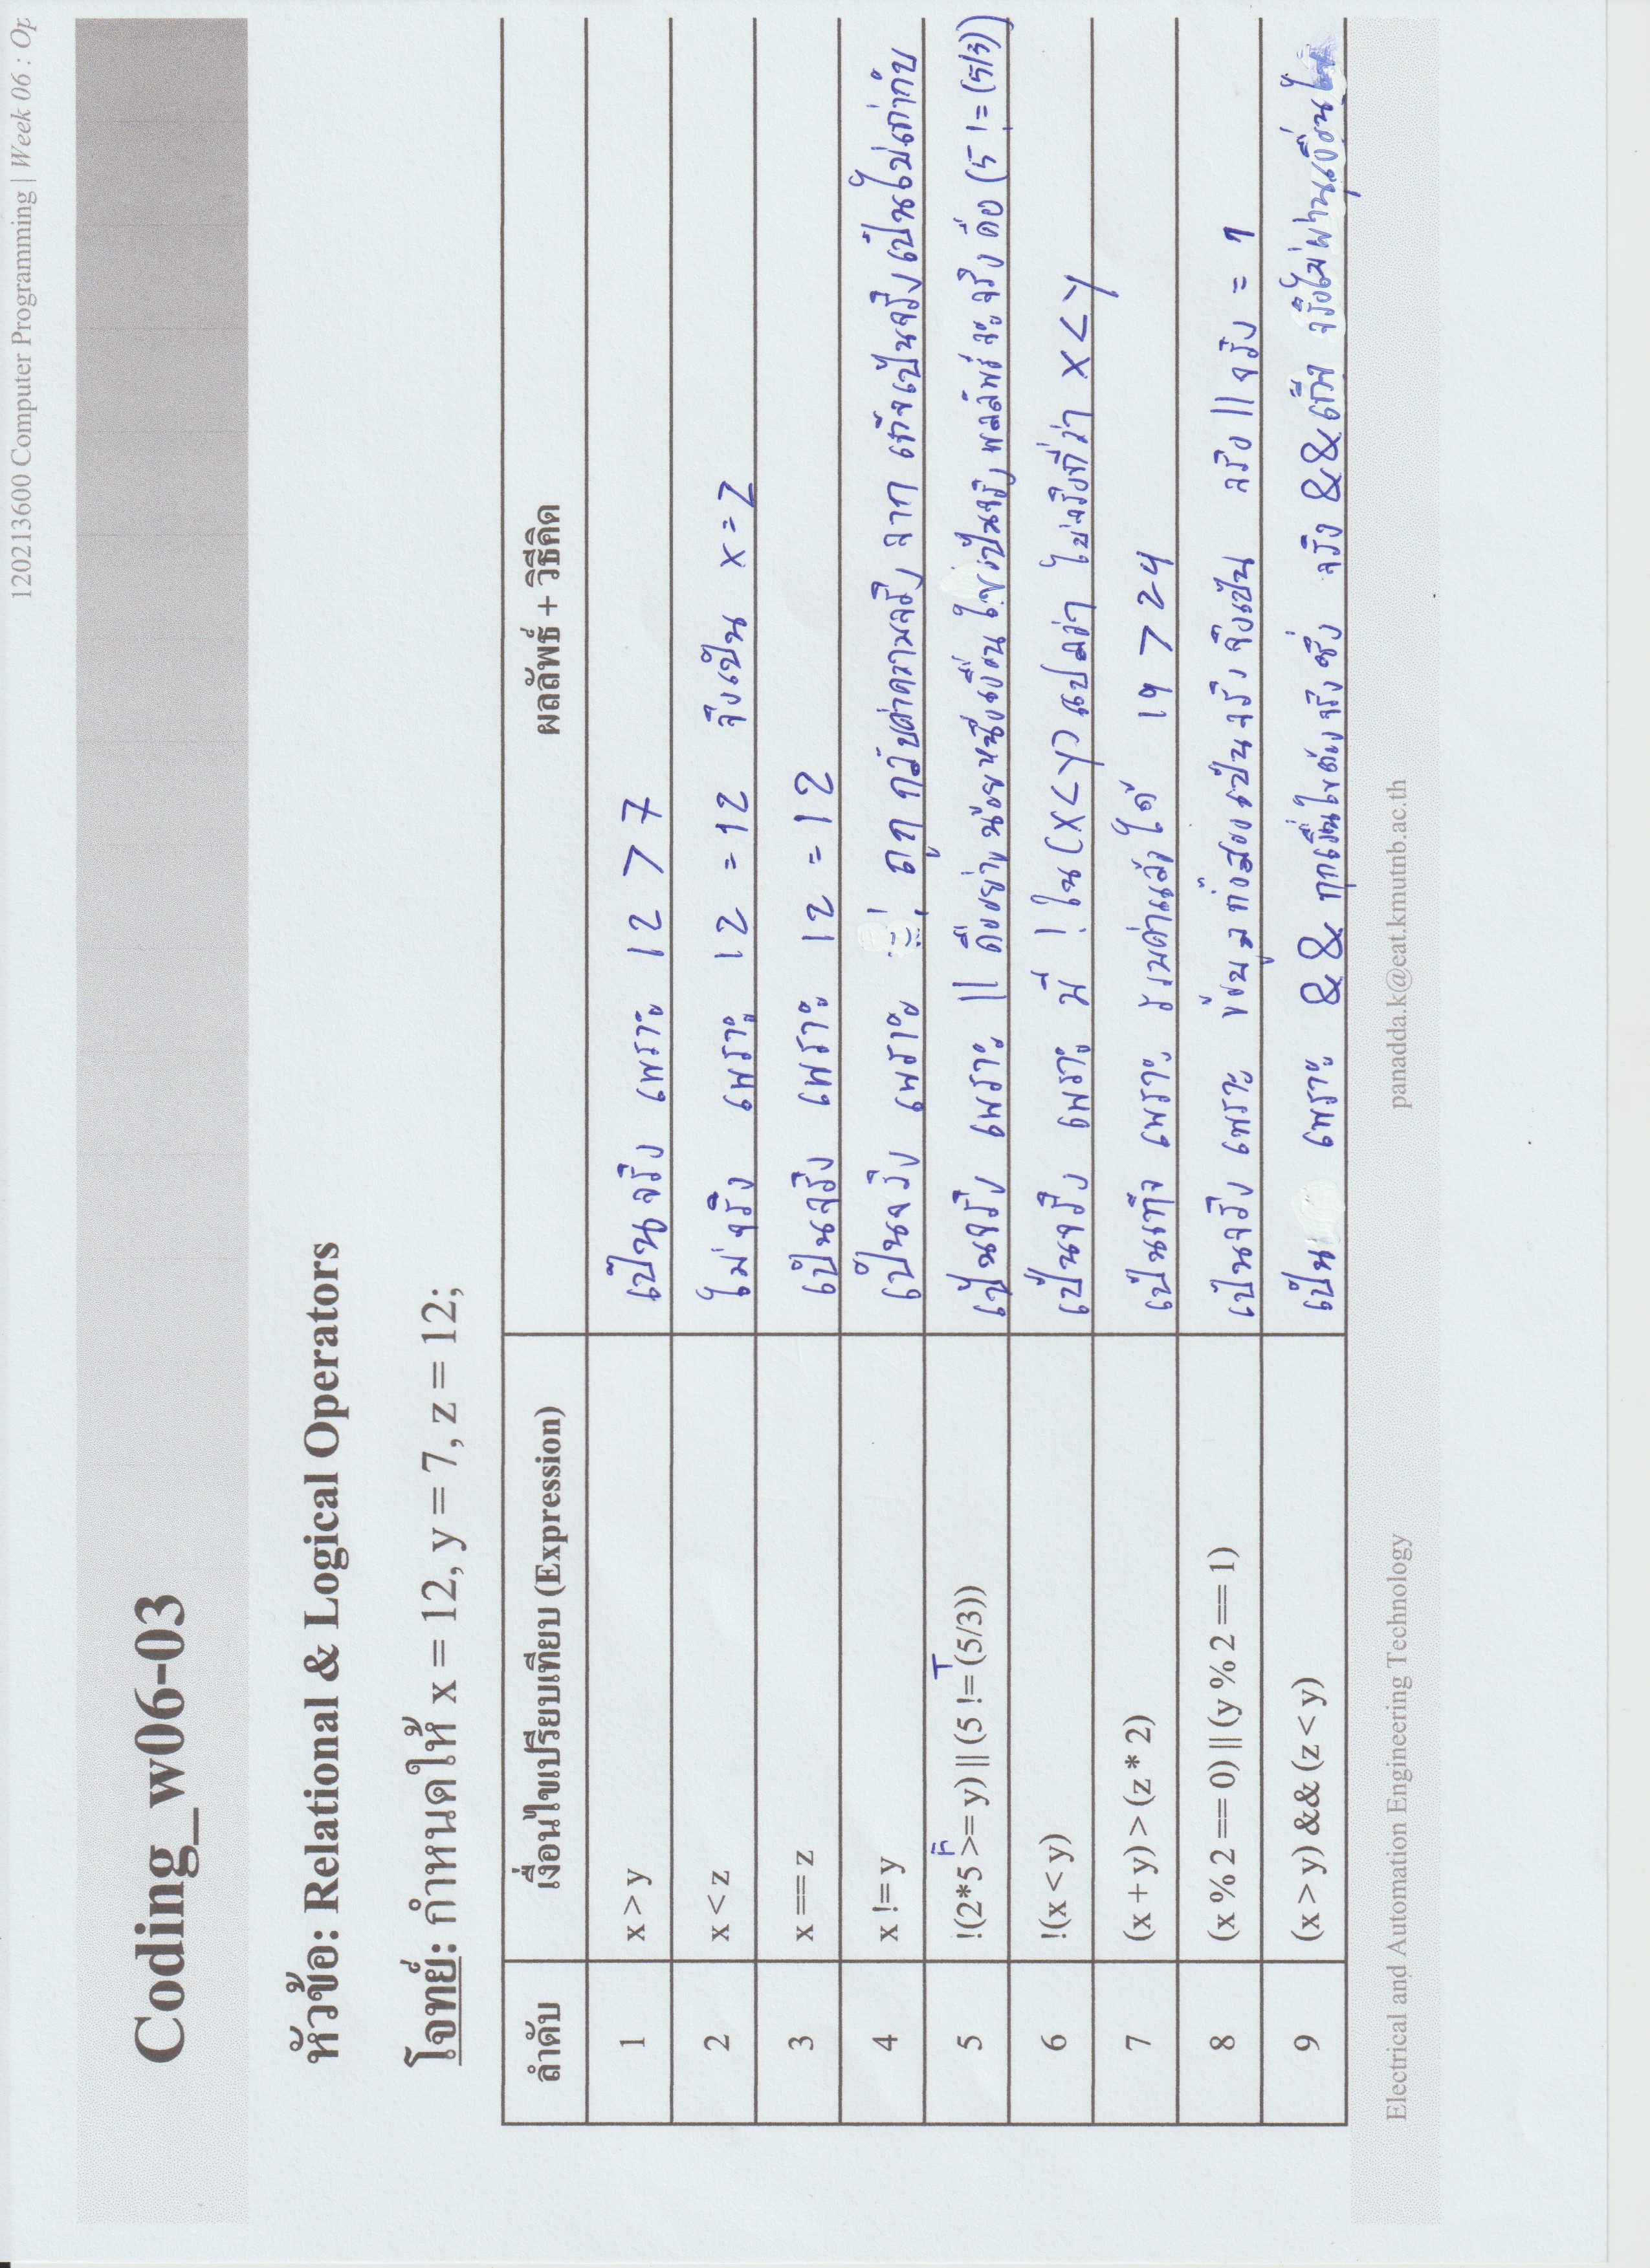 120213600 Computer Programming | Week 06 : Op
Coding_w06-03
หัวข้อ: Relational & Logical Operators
โจทย์: กำหนดให้ x = 12, y = 7, z = 12;
ลำดับ เงื่อนไขเปรียบเทียบ (Expression) ผลลัพธ์ + วิธีคิด
1 x > y เป็นจริง เพราะ 12 > 7
2 x < z ไม่จริง เพราะ 12 = 12 จึงเป็น x = z
3 x == z เป็นจริง เพราะ 12 = 12
4 x != y เป็นจริง เพราะ ! ถูกกลับค่าความจริง จาก เท็จเป็นจริง เป็นไม่เท่ากับ
F T
5 !(2*5 >= y) || (5 != (5/3)) เป็นจริง เพราะ || คืออย่างน้อยหนึ่งเงื่อนไขเป็นจริง ผลลัพธ์จะจริง คือ (5 != (5/3))
6 !(x < y) เป็นจริง เพราะ มี ! ใน (x < y) แปลว่า ไม่จริงที่ว่า x < y
7 (x + y) > (z * 2) เป็นเท็จ เพราะ รวมค่าแล้วได้ 19 > 24
8 (x % 2 == 0) || (y % 2 == 1) เป็นจริง เพราะ ข้อมูลทั้งสองเป็นจริง จึงเป็น จริง || จริง = 1
9 (x > y) && (z < y) เป็น เพราะ && ทุกเงื่อนไขต้องจริง ซึ่ง จริง && เท็จ จริงไม่ผ่านเงื่อนไข
Electrical and Automation Engineering Technology panadda.k@eat.kmutnb.ac.th